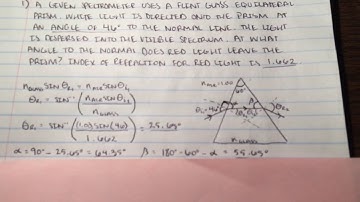 1) A GIVEN SPECTROMETER USES A FLINT GLASS EQUILATERAL
PRISM. WHITE LIGHT IS DIRECTED ONTO THE PRISM AT
AN ANGLE OF 46° TO THE NORMAL LINE. THE LIGHT
IS DISPERSED INTO THE VISIBLE SPECTRUM. AT WHAT
ANGLE TO THE NORMAL DOES RED LIGHT LEAVE THE
PRISM? INDEX OF REFRACTION FOR RED LIGHT IS 1.662.
n_GLASS SIN θ_R1 = n_AIR SIN θ_i1
θ_R1 = SIN⁻¹ (n_AIR SIN θ_i1 / n_GLASS)
θ_R1 = SIN⁻¹ ((1.00) SIN(46) / 1.662) = 25.65°
α = 90° - 25.65° = 64.35° β = 180° - 60° - α = 55.65°
n_AIR = 1.00
60°
n_GLASS